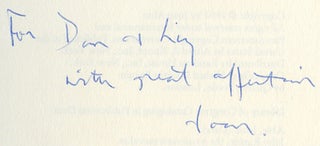 For Dan & Liz
with great affection
Joan.